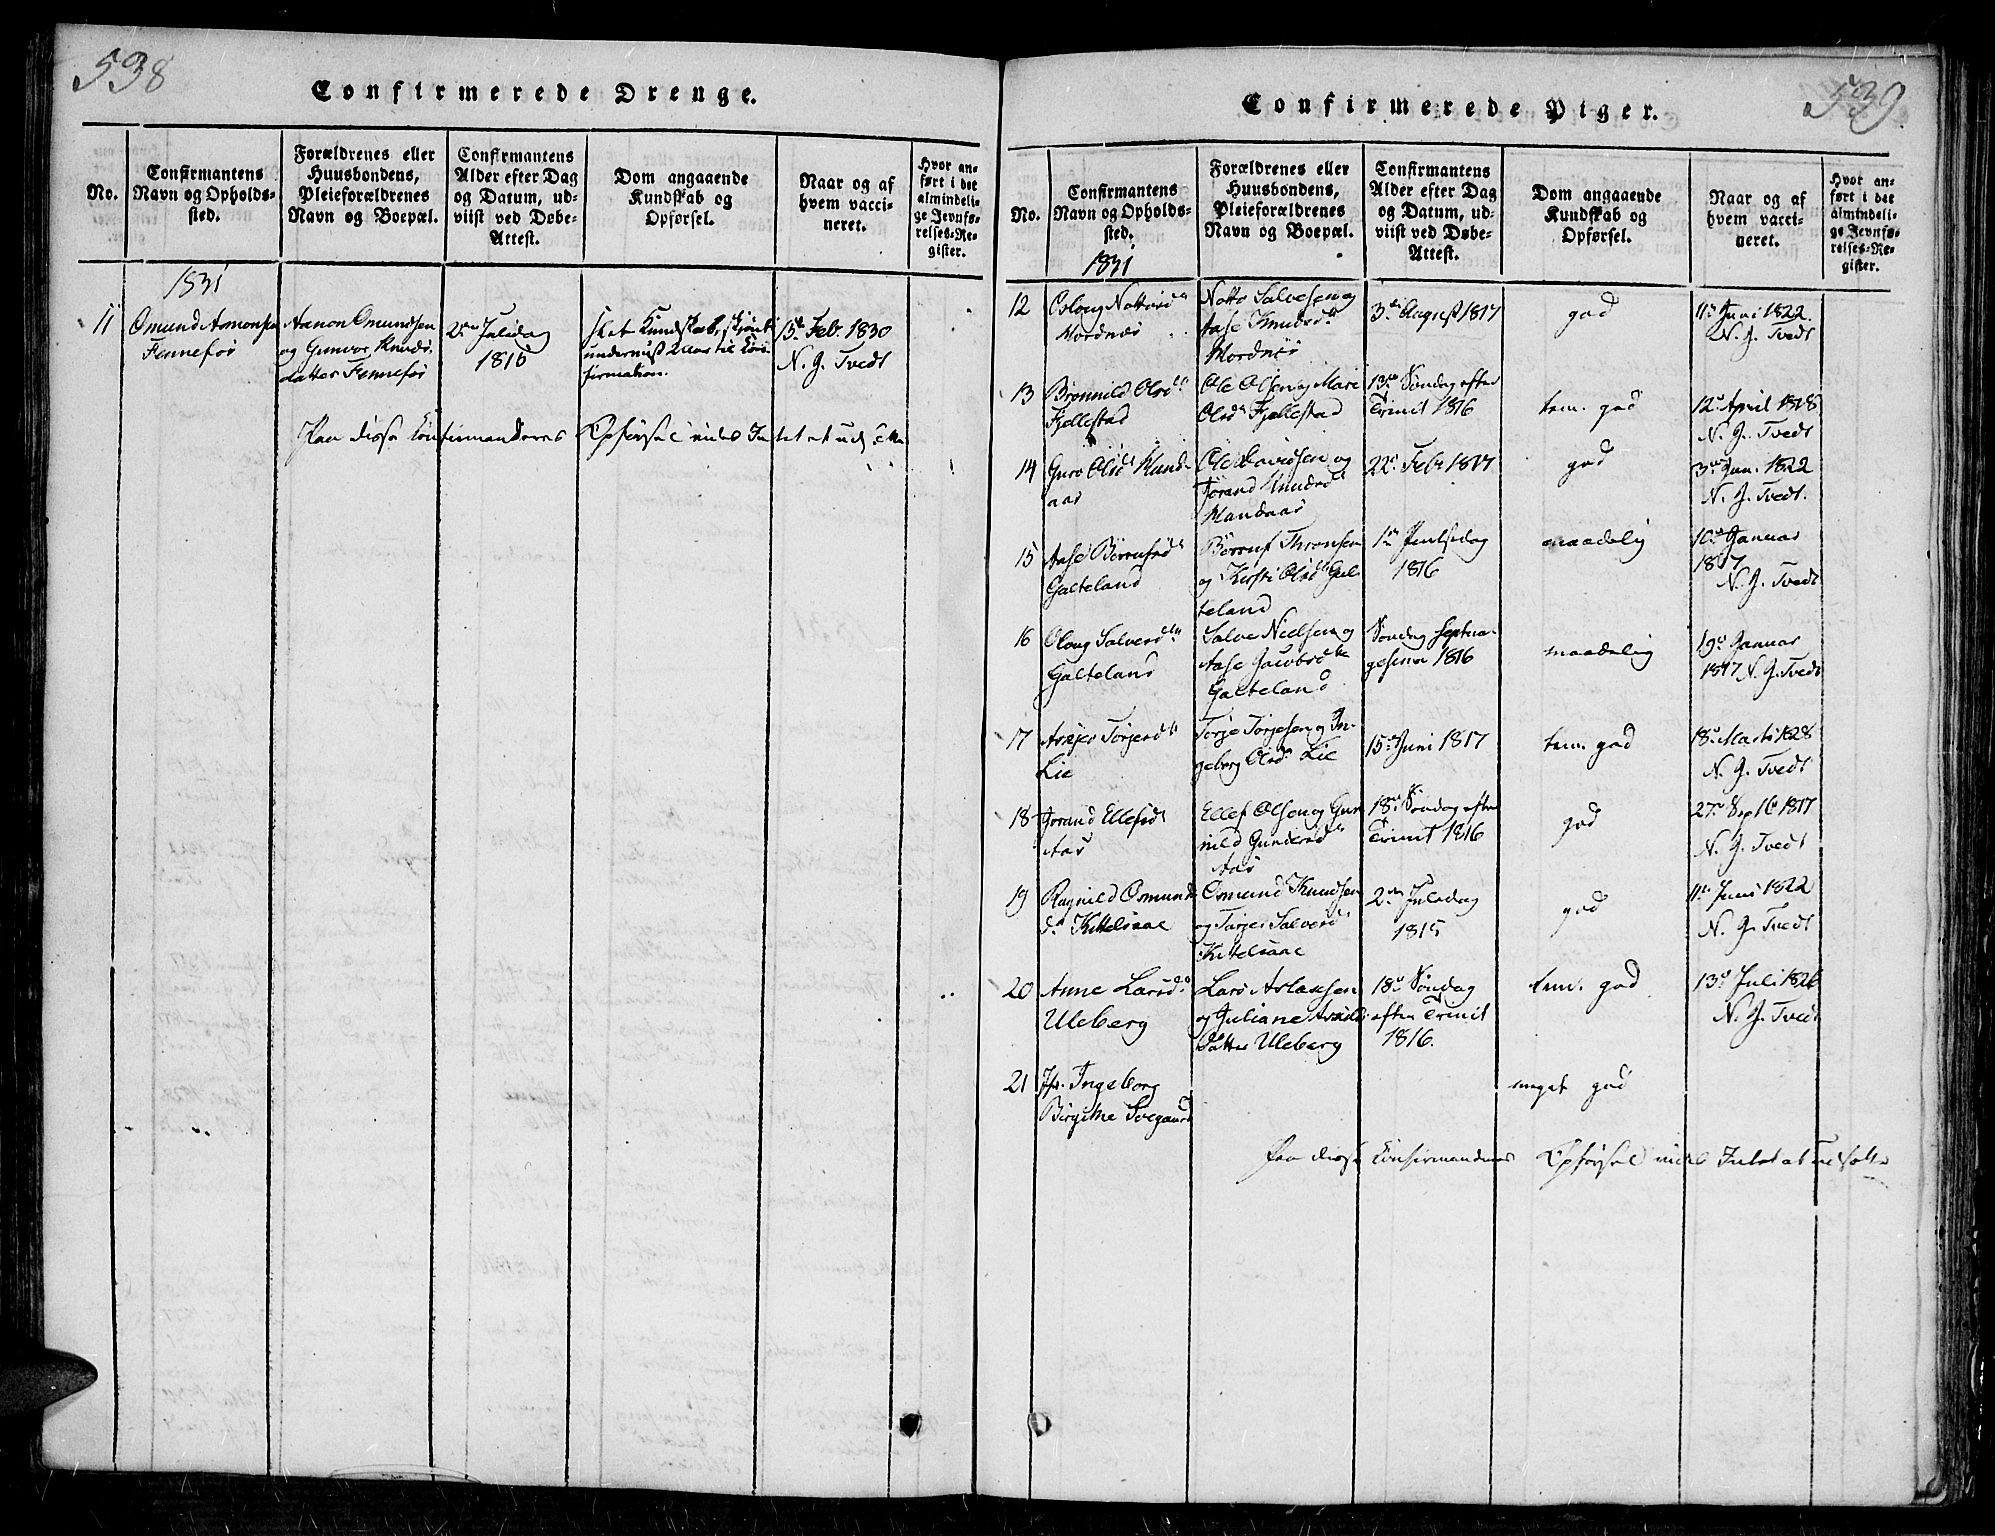 538
Confirmerede Drenge.
No.
Confirmantens
Navn og Opholds-
sted.
Forældrenes eller
Huusbondens,
Pleieforældrenes
Navn og Boepæl.
Confirmantens
Alder efter Dag
og Datum, ud-
viist ved Døbe-
Attest.
Dom angaaende
Kundskab og
Opførsel.
Naar og af
hvem vacci-
neret.
Hvor an-
ført i det
almindeli-
ge Jevnfø-
relses-Re-
gister.
1831
11
Omund Aanonsen
Fennefos
Aanon Omundsen
og Gunvor Knuds-
datter Fennefos
2den Juledag
1816
slet Kundskab, skjönt
undervist 2 Aar til Con-
firmation.
15de Febr. 1830
N. G. Tvedt
Paa disse Confirmanderes Opførsel vides Intet at ud
539.
Confirmerede Piger.
No.
Confirmantens
Navn og Opholds-
sted.
Forældrenes eller
Huusbondens,
Pleieforældrenes
Navn og Boepæl.
Confirmantens
Alder efter Dag
og Datum, ud-
viist ved Døbe-
Attest.
Dom angaaende
Kundskab og
Opførsel.
Naar og af
hvem vacci-
neret.
Hvor an-
ført i det
almindeli-
ge Jevnfø-
relses-Re-
gister.
1831
12
Oloug Nottosdr
Mordnes
Notto Salvesen og
Aase Knudsdr
Mordnes
3die August 1817
god
11te Juni 1822.
N. G. Tvedt
13
Brønnild Olsdr
Fjellestad
Ole Olsen og Mari
Olsdr Fjellestad
13de Søndag efter
Trinit 1816
tem. god
12te April 1818
N. G. Tvedt
14
Guro Olsdr Kland-
aas
Ole Davidsen og
Jorand Knudsdr
Klandaas
22de Febr 1817
god
3die Juni 1822
N. G. Tvedt.
15
Aase Börrufsdr
Galteland
Börruf Thronsen
og Kirsti Olsdr Gal-
teland
1ste Pintsedag
1816
maadelig
10de Januar
1817
N. G. Tvedt
16
Oloug Salvesdtr
Galteland
Salve Nielsen og
Aase Jacobsdtr
Galteland
Søndag Septua-
gesima 1816
maadelig
19de Januar
1817 N. G. Tvedt
17
Torjesdr
Lie
Torje Torjesen og In-
geborg Olsdr Lie
15de Juni 1817
tem. god
18de Marts 1828
N. G. Tvedt
18
Jorand Ellefsdr
Aas
Ellef Olsen og Gun-
nild Gundersdr
Aas
18de Søndag efter
Trinit 1816
god
27de Septb 1817
N. G. Tvedt
19
Ragnild Osmunds-
dr Kittelsaae
Osmund Knudsen
og Torjer Salvesdr
Kittelsaae
2den Juledag
1815
god
11te Juni 1822
N. G. Tvedt
20
Anne Larsdr
Uleberg
Lars Aslaksen
og Juliane
datter Uleberg
18de Søndag
efter Trinit
1816.
tem. god
13de Juli 1826
N. G. Tvedt
21
Jfr. Ingeborg
Birgithe Svegaard
meget god
Paa disse Confirmanders Opførsel vides Intet at udsætte